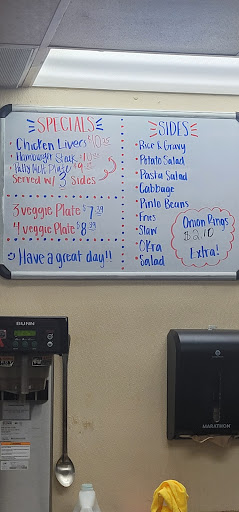 SPECIALS
• Chicken Livers
• Hamburger Steak
Patty Melt Plate
Served w/ 3 Sides
3 veggie Plate $7.39
4 veggie Plate $8.39
Have a great day!!
SIDES
• Rice & Gravy
• Potato Salad
• Pasta Salad
• Cabbage
• Pinto Beans
• Fries
• Slaw
• Okra
• Salad
Onion Rings
$2.10
Extra!
BUNN
MARATHON